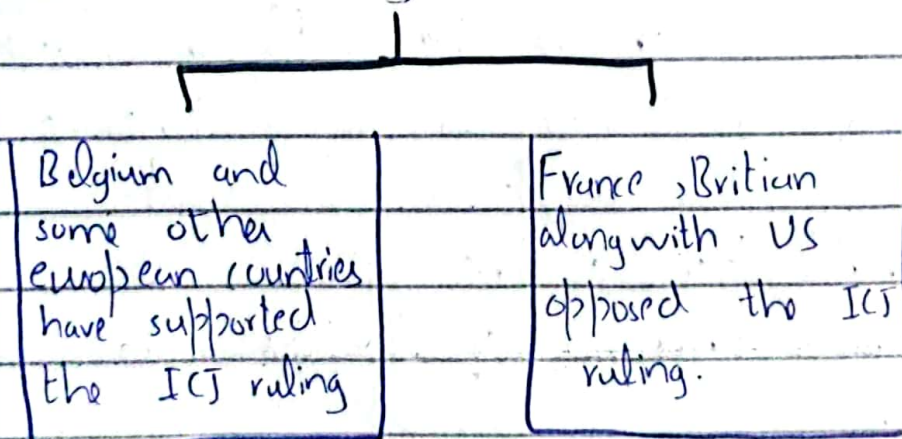 Belgium and
some other
european countries
have supported
the ICJ ruling
France, Britian
alongwith US
opposed the ICJ
ruling.